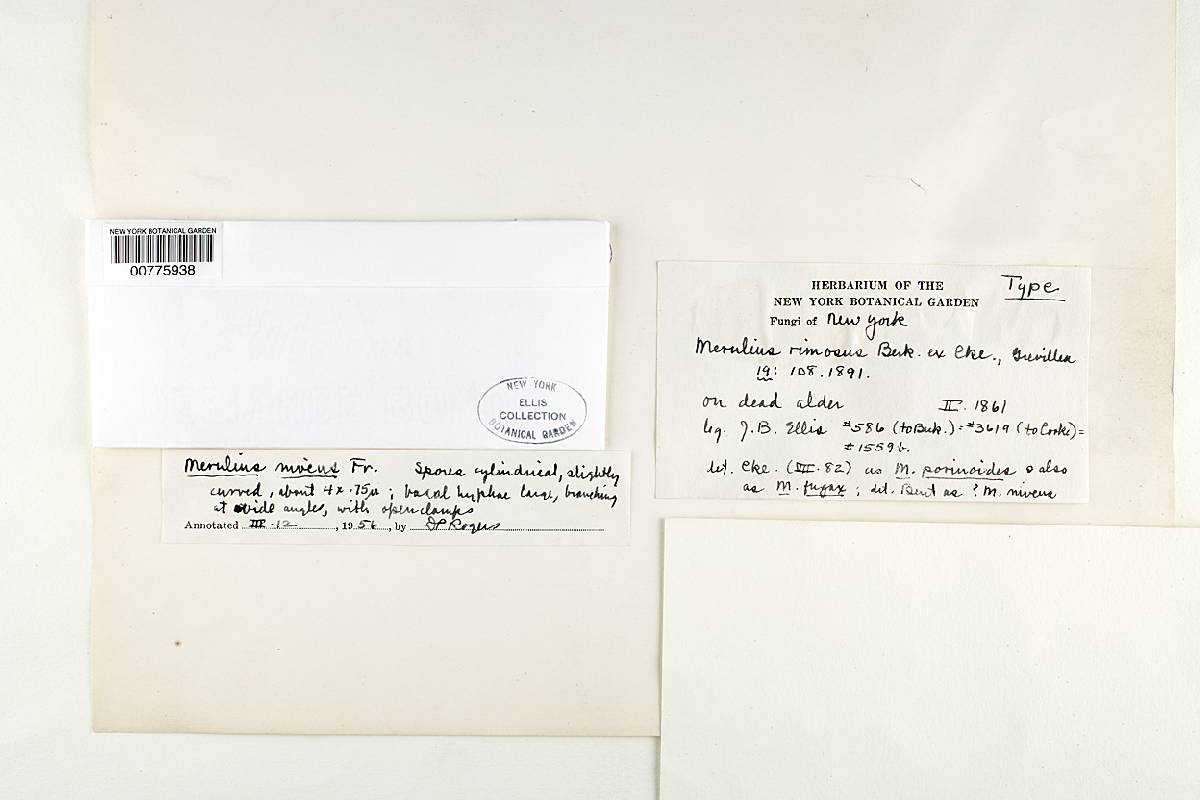 NEW YORK BOTANICAL GARDEN
00775938
NEW YORK
ELLIS
COLLECTION
BOTANICAL GARDEN
Merulius niveus Fr. Spores cylindrical, slightly
curved, about 4 x .75µ; basal hyphae large, branching
at wide angles, with open clamps
Annotated III.12, 1956, by DP Rogers
HERBARIUM OF THE
NEW YORK BOTANICAL GARDEN
Type
Fungi of New York
Merulius rimosus Berk. ex Cke., Grevillea
19: 108. 1891.
on dead alder II. 1861
leg. J.B. Ellis #586 (to Berk.) = #3619 (to Cooke) =
#1559b.
det. Cke. (82) as M. porinoides & also
as M. fugax; det. Burt as ? M. niveus